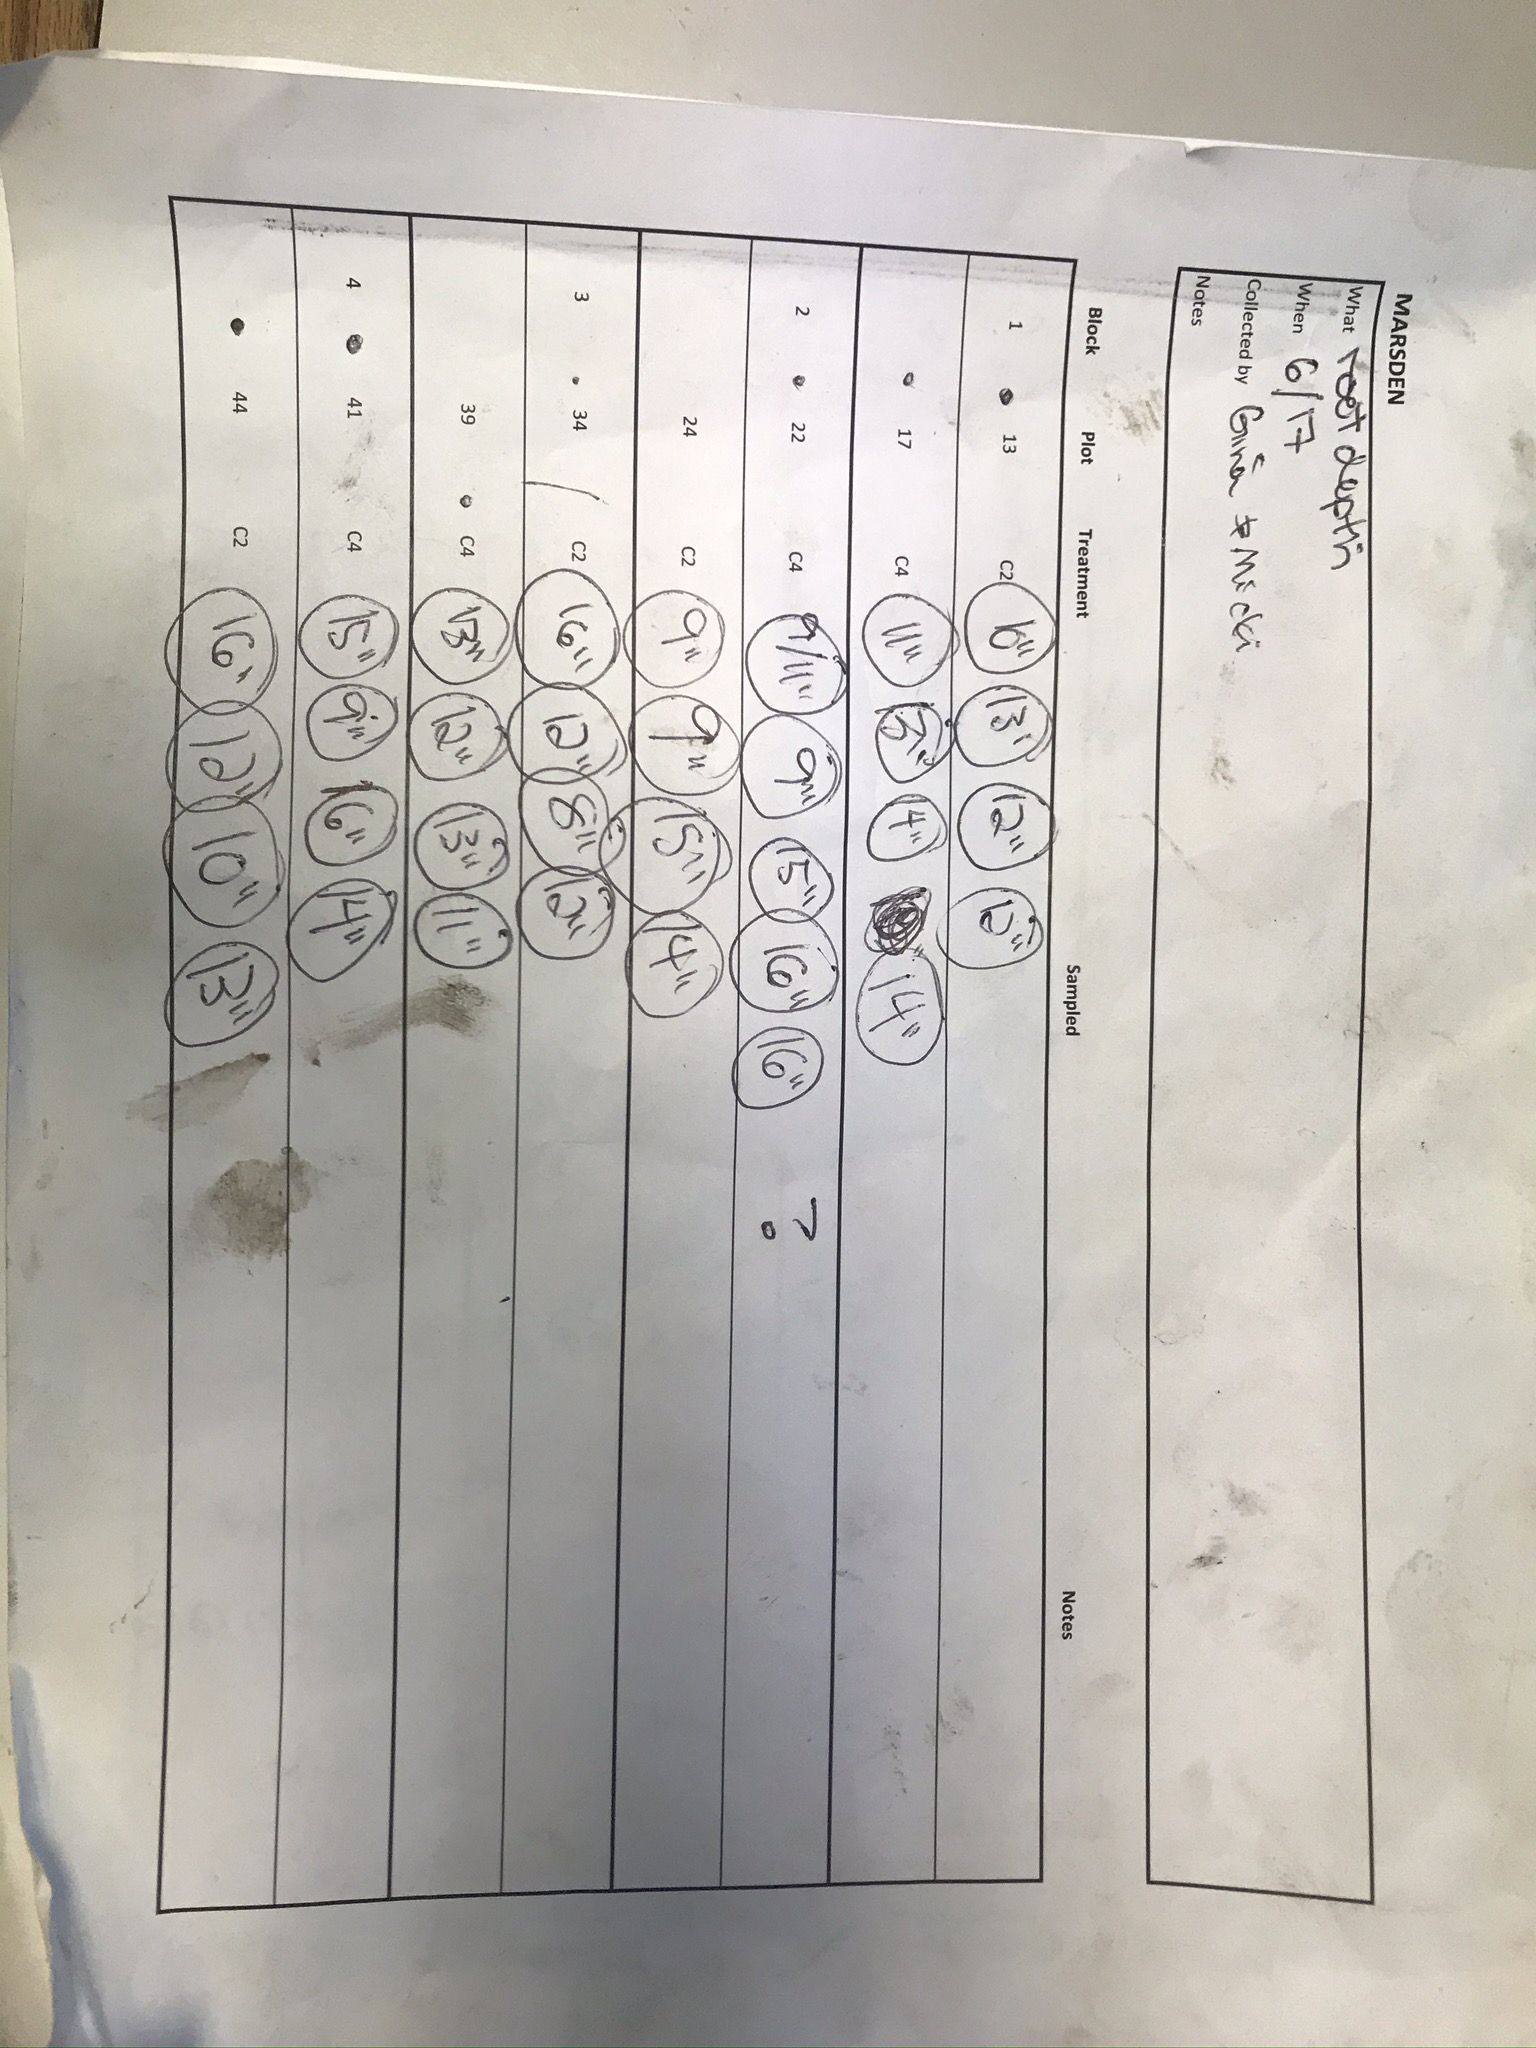 MARSDEN
What root depth
When 6/17
Collected by Gina & Micki
Notes
Block Plot Treatment Sampled Notes
1 13 C2 10" 13" 12" 12"
17 C4 11" 13" 14" 14"
2 22 C4 9/11" 9" 15" 16" 16" ?
24 C2 9" 9" 15" 14"
3 34 C2 16" 12" 8" 12"
39 C4 13" 12" 13" 11"
4 41 C4 15" 9" 16" 14"
44 C2 16" 12" 10" 13"